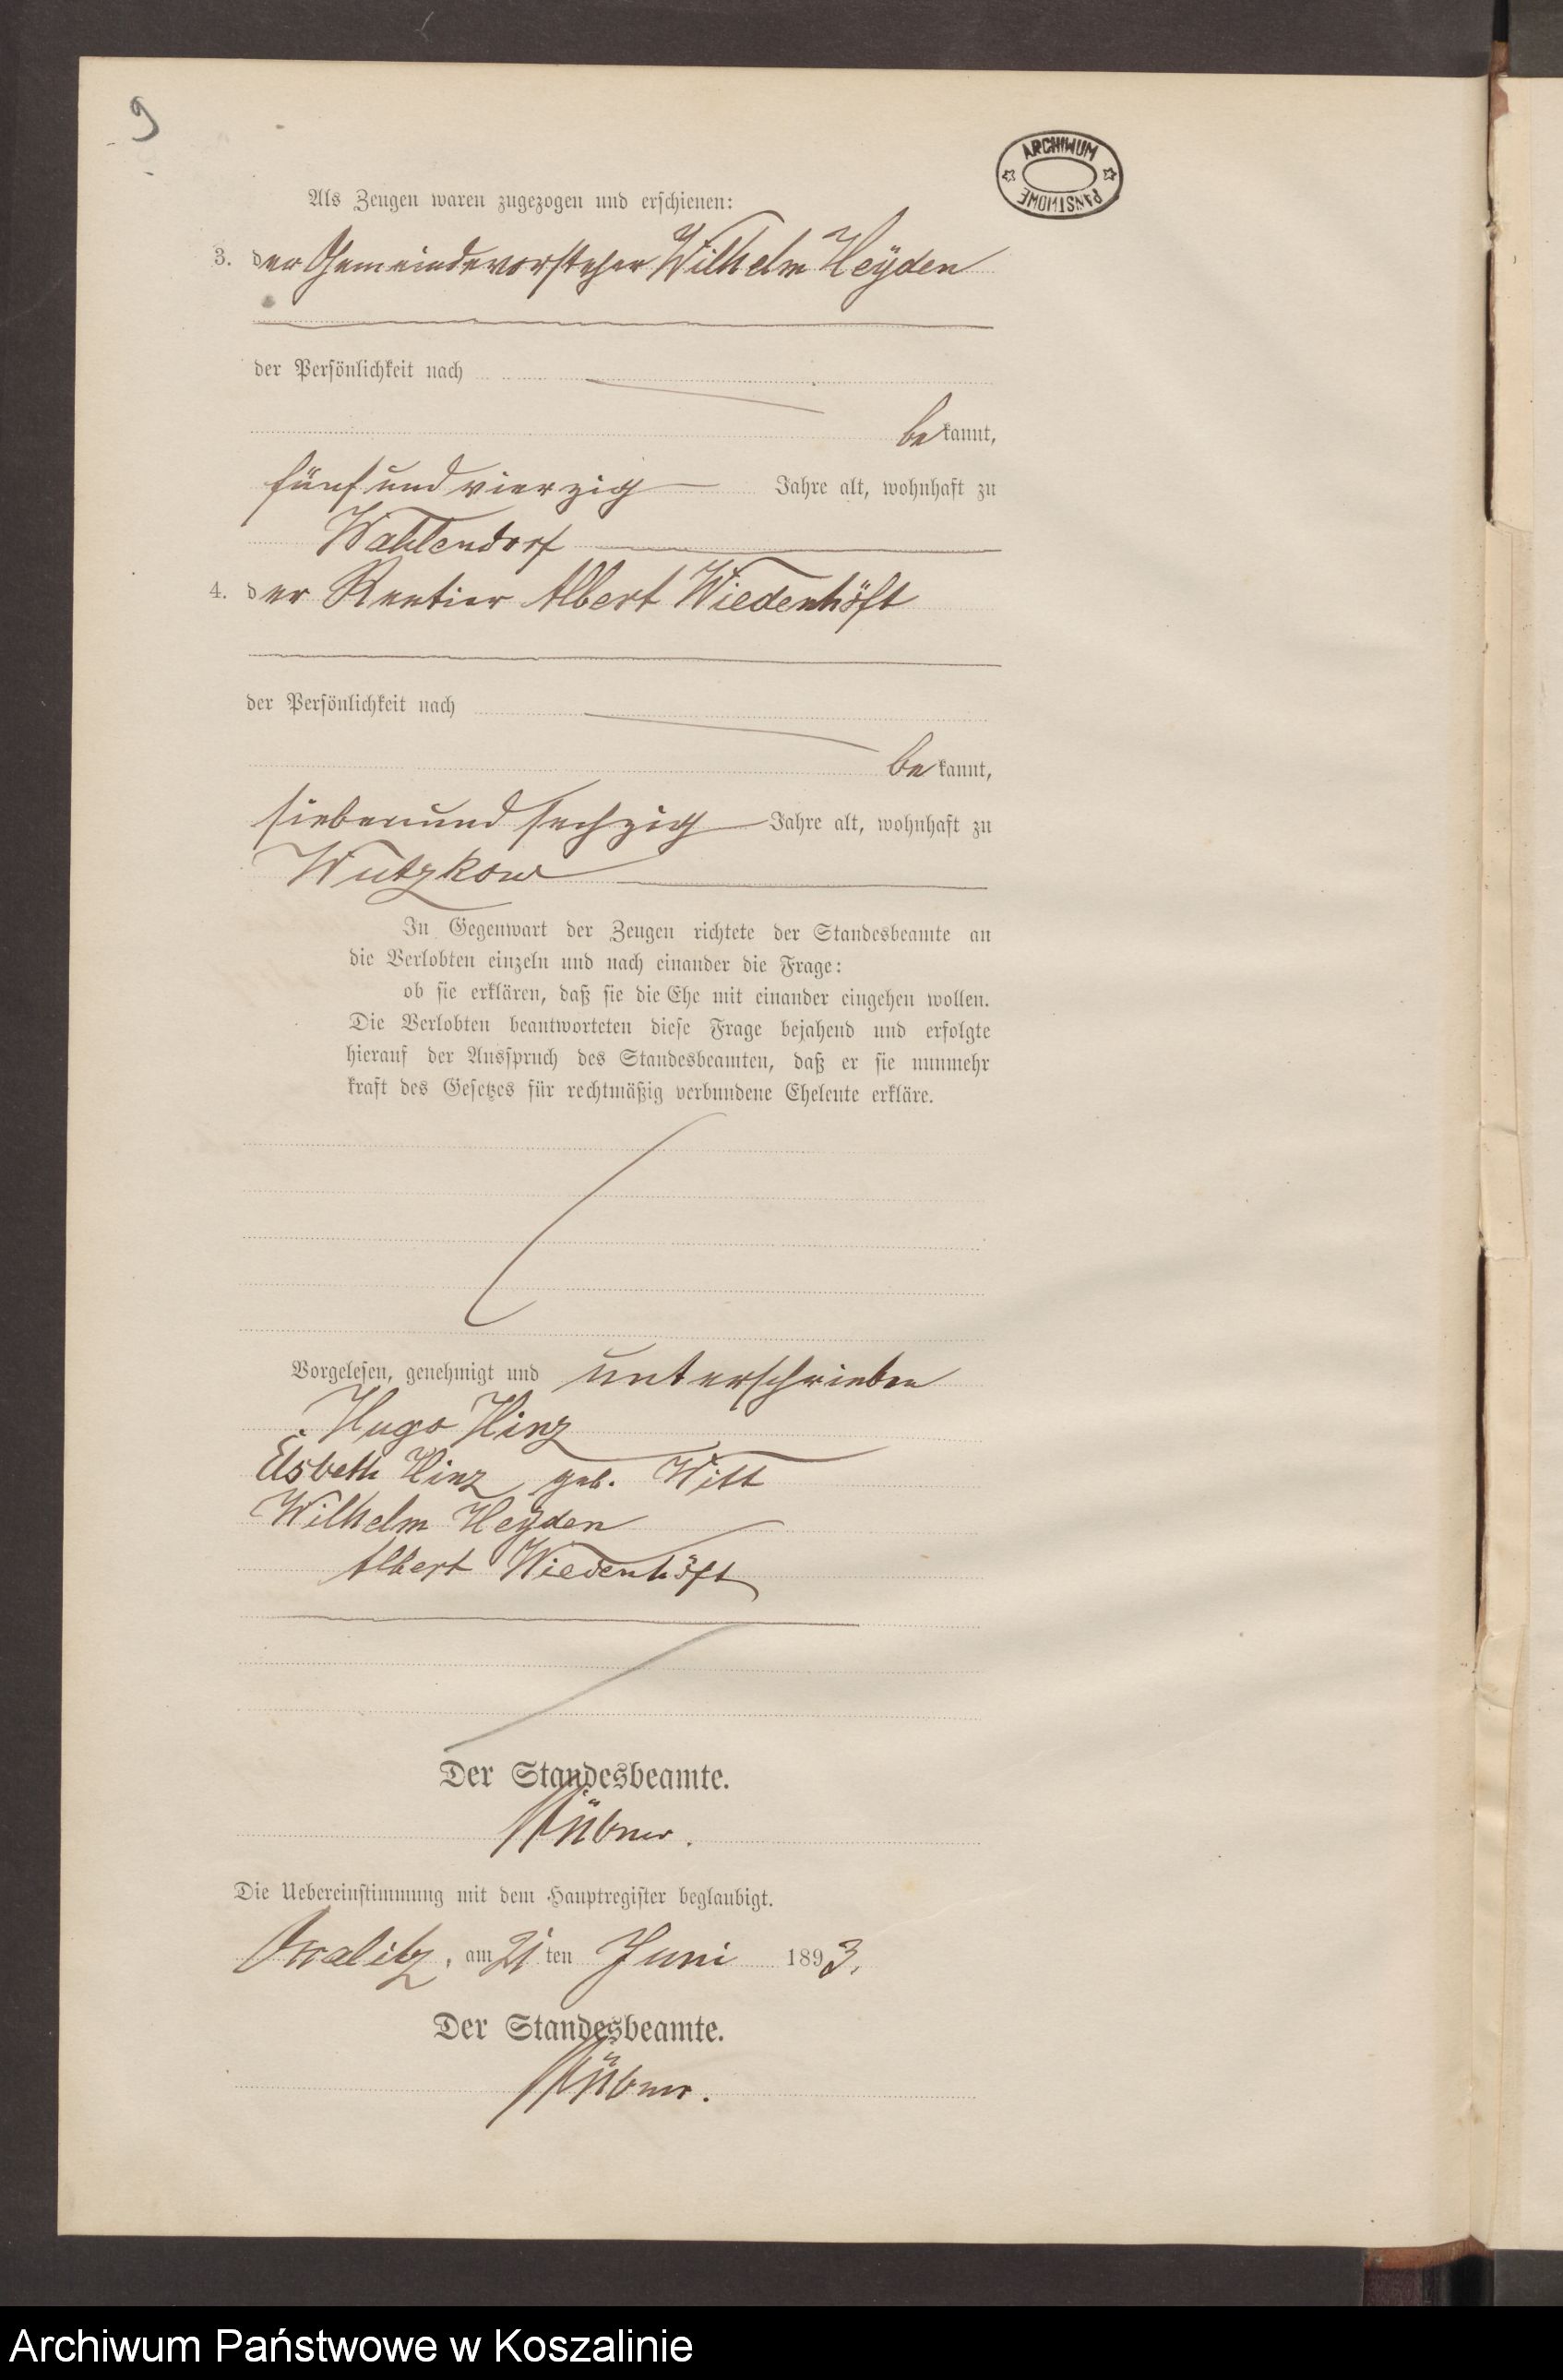 9
ARCHIWUM
PAŃSTWOWE
Als Zeugen waren zugezogen und erschienen:
3. der Gemeindevorsteher Wilhelm Heyden
der Persönlichkeit nach
bekannt,
fünf und vierzig Jahre alt, wohnhaft zu
Wahlendorf
4. der Rentier Albert Wiedenhöft
der Persönlichkeit nach
bekannt,
sieben und sechzig Jahre alt, wohnhaft zu
Wutzkow
In Gegenwart der Zeugen richtete der Standesbeamte an
die Verlobten einzeln und nach einander die Frage:
ob sie erklären, daß sie die Ehe mit einander eingehen wollen.
Die Verlobten beantworteten diese Frage bejahend und erfolgte
hierauf der Ausspruch des Standesbeamten, daß er sie nunmehr
kraft des Gesetzes für rechtmäßig verbundene Eheleute erkläre.
Vorgelesen, genehmigt und unterschrieben
Hugo Hinz
Elsbeth Hinz geb. Witt
Wilhelm Heyden
Albert Wiedenhöft
Der Standesbeamte.
Die Uebereinstimmung mit dem Hauptregister beglaubigt.
am 21 ten Juni 1893.
Der Standesbeamte.
Archiwum Państwowe w Koszalinie